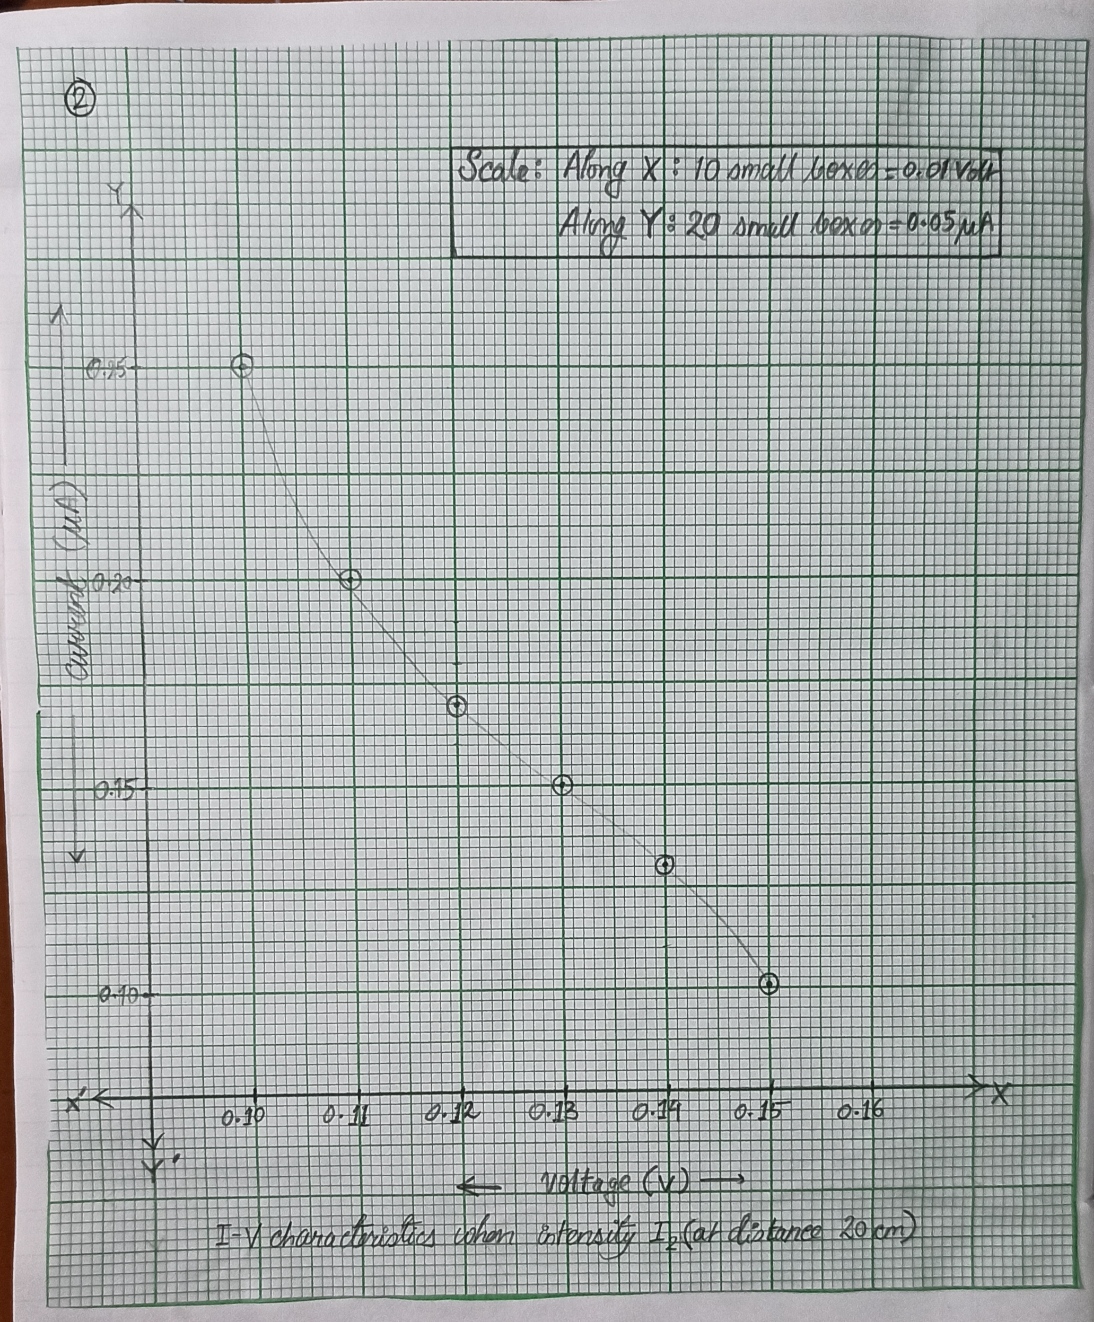 ②
Scale: Along X: 10 small boxes = 0.01 Volt
Along Y: 20 small boxes = 0.05 μA
Y
0.25
Current (μA)
0.20
0.15
0.10
X' X
0.10 0.11 0.12 0.13 0.14 0.15 0.16
Y'
voltage (V)
I-V characteristics when intensity I₂ (at distance 20 cm)